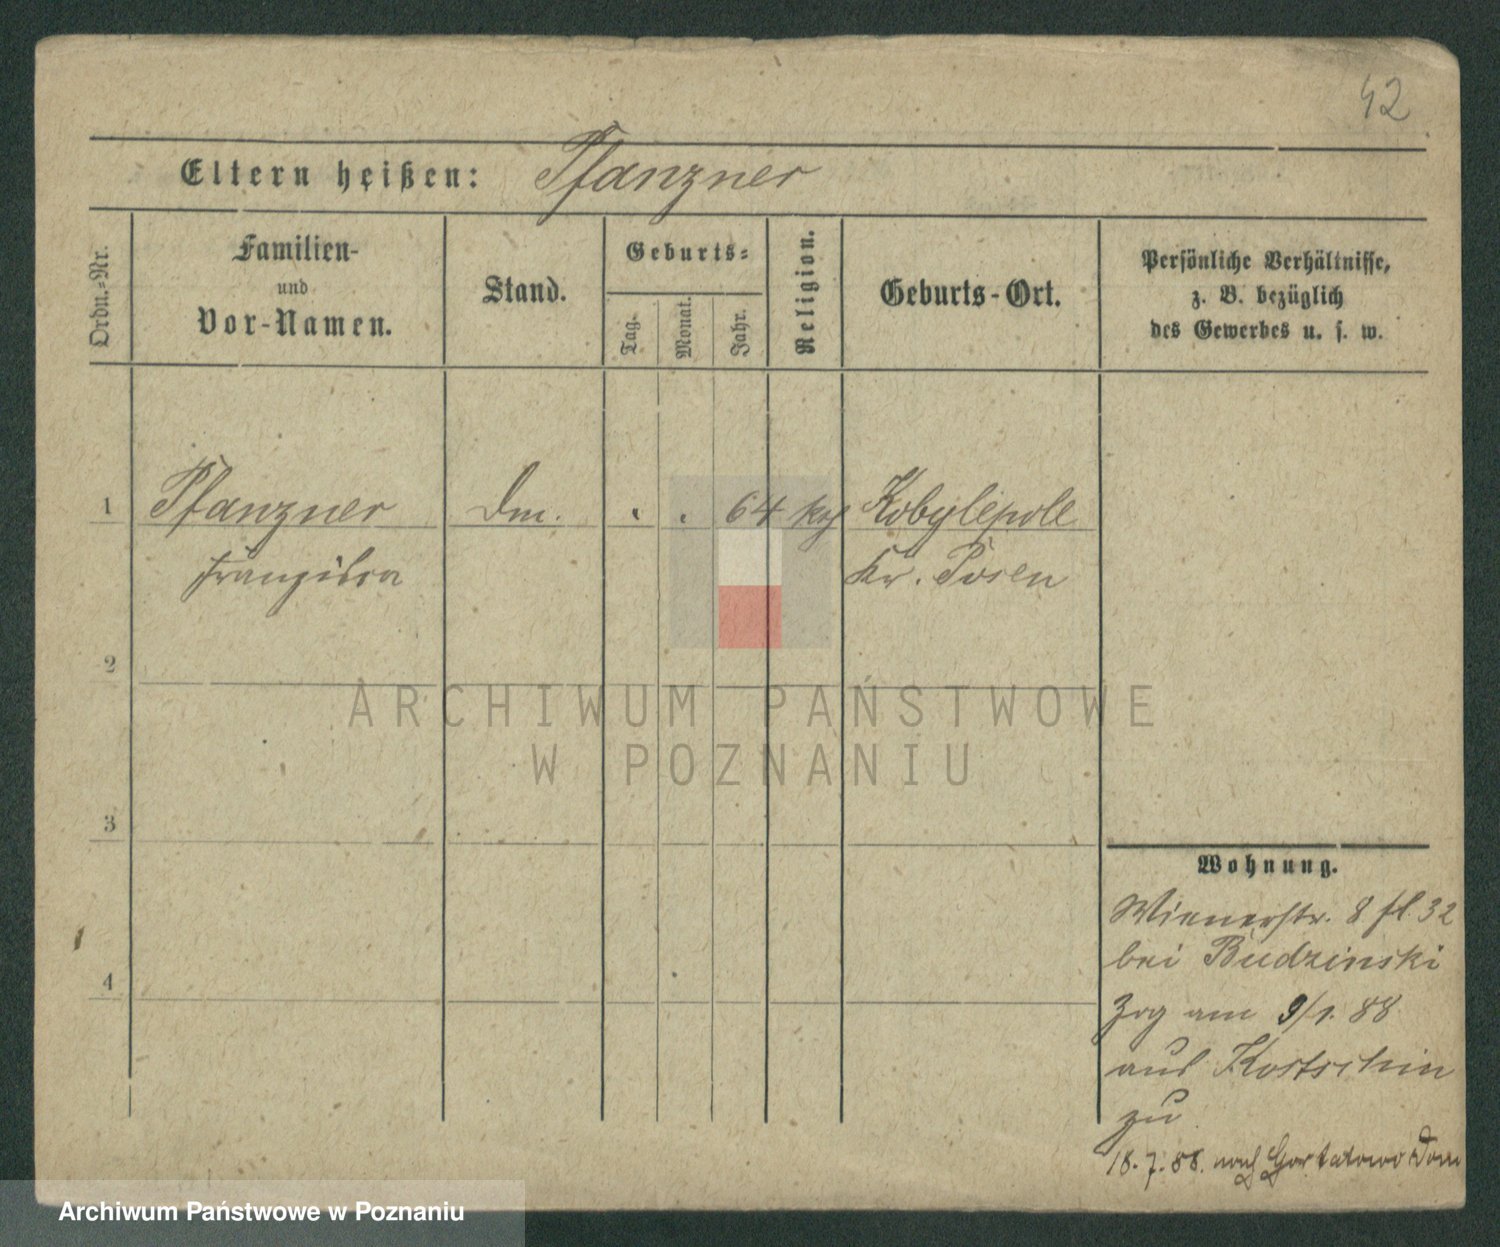 42
Eltern heißen: Pfanzner
Ordn.-Nr.
Familien-
und
Vor-Namen.
Stand.
Geburts-
Tag.
Monat.
Jahr.
Religion.
Geburts-Ort.
Persönliche Verhältnisse,
z. B. bezüglich
des Gewerbes u. s. w.
1 Pfanzner Dm. 64 Kobylepole
Franziska Kr. Posen
2
ARCHIWUM PAŃSTWOWE
W POZNANIU
3
4
Wohnung.
Wienerstr. 8 fl. 32
bei Budzinski
Zog am 9/1. 88
aus Kostschin
zu
18.7.88. nach Gortatowo Dom
Archiwum Państwowe w Poznaniu